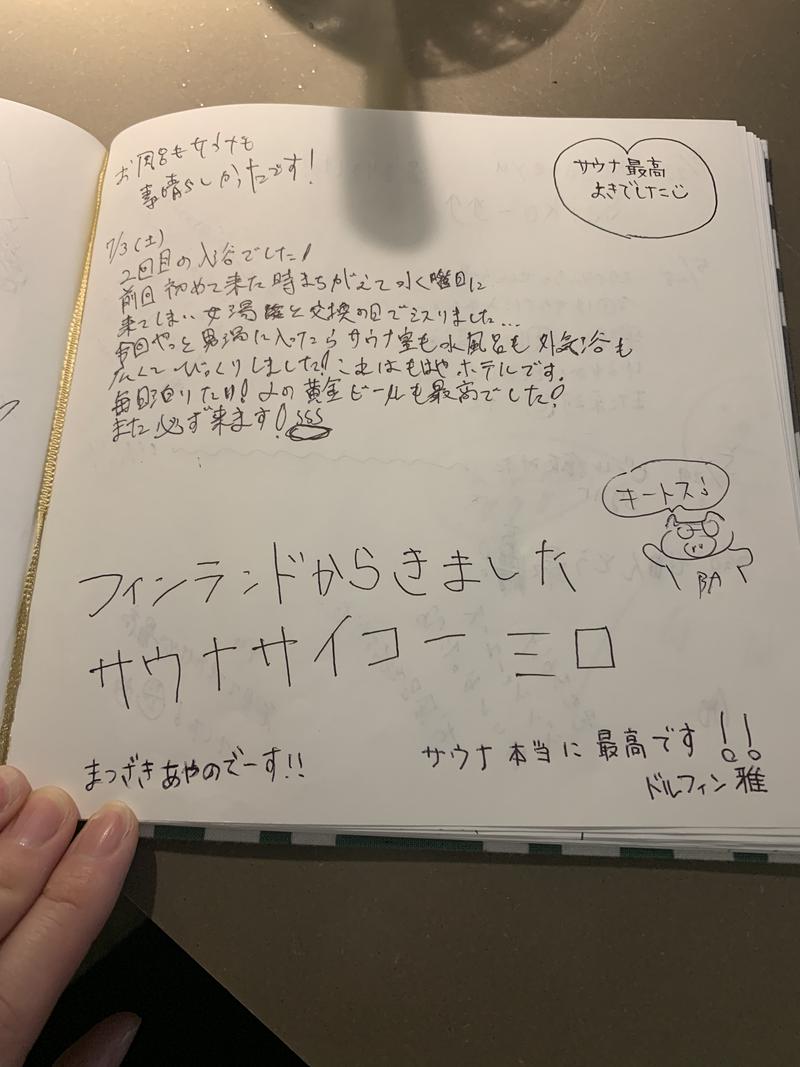 お風呂もサウナも
素晴らしかったです!
サウナ最高
よきでした
7/3(土)
2回目の入浴でした!
前回初めて来た時まちがえて水曜日に
来てしまい女湯と交換の日でミスりました...
今回やっと男湯に入ったらサウナ室も水風呂も外気浴も
広くてびっくりしました!これはもはやホテルです。
毎日泊りたい!よの黄金ビールも最高でした!
また必ず来ます!
キートス♪
BA
フィンランドからきました
サウナサイコー ミロ
まつざきあやのでーす!!
サウナ本当に最高です!!
ドルフィン雅